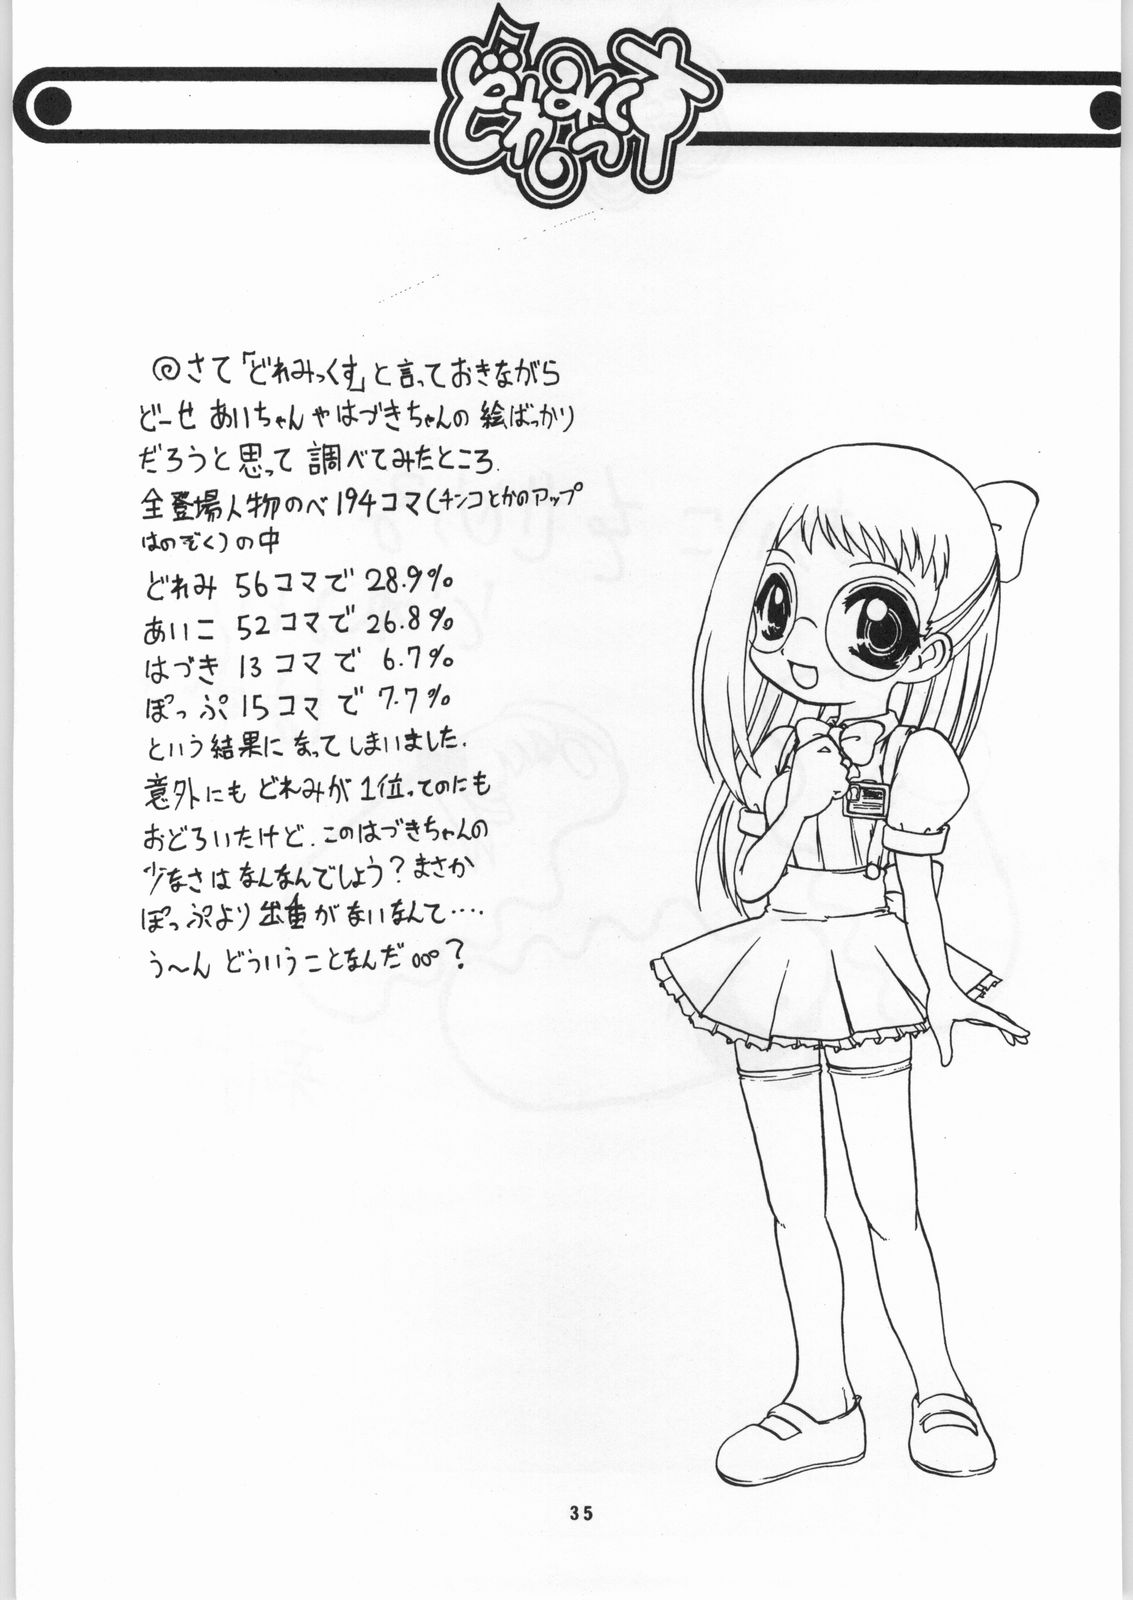 どれみっくす
◎さて「どれみっくす」と言っておきながら
どーせ あいちゃんやはづきちゃんの 絵ばっかり
だろうと思って 調べてみたところ.
全登場人物のべ194コマ(チンコとかのアップ
はのぞく)の中
どれみ 56コマで 28.9%
あいこ 52コマで 26.8%
はづき 13コマで 6.7%
ぽっぷ 15コマで 7.7%
という結果になってしまいました.
意外にも どれみが1位ってのにも
おどろいたけど.このはづきちゃんの
少なさはなんなんでしょう?まさか
ぽっぷより出番がないなんて‥‥
う〜ん どういうことなんだooo?
35